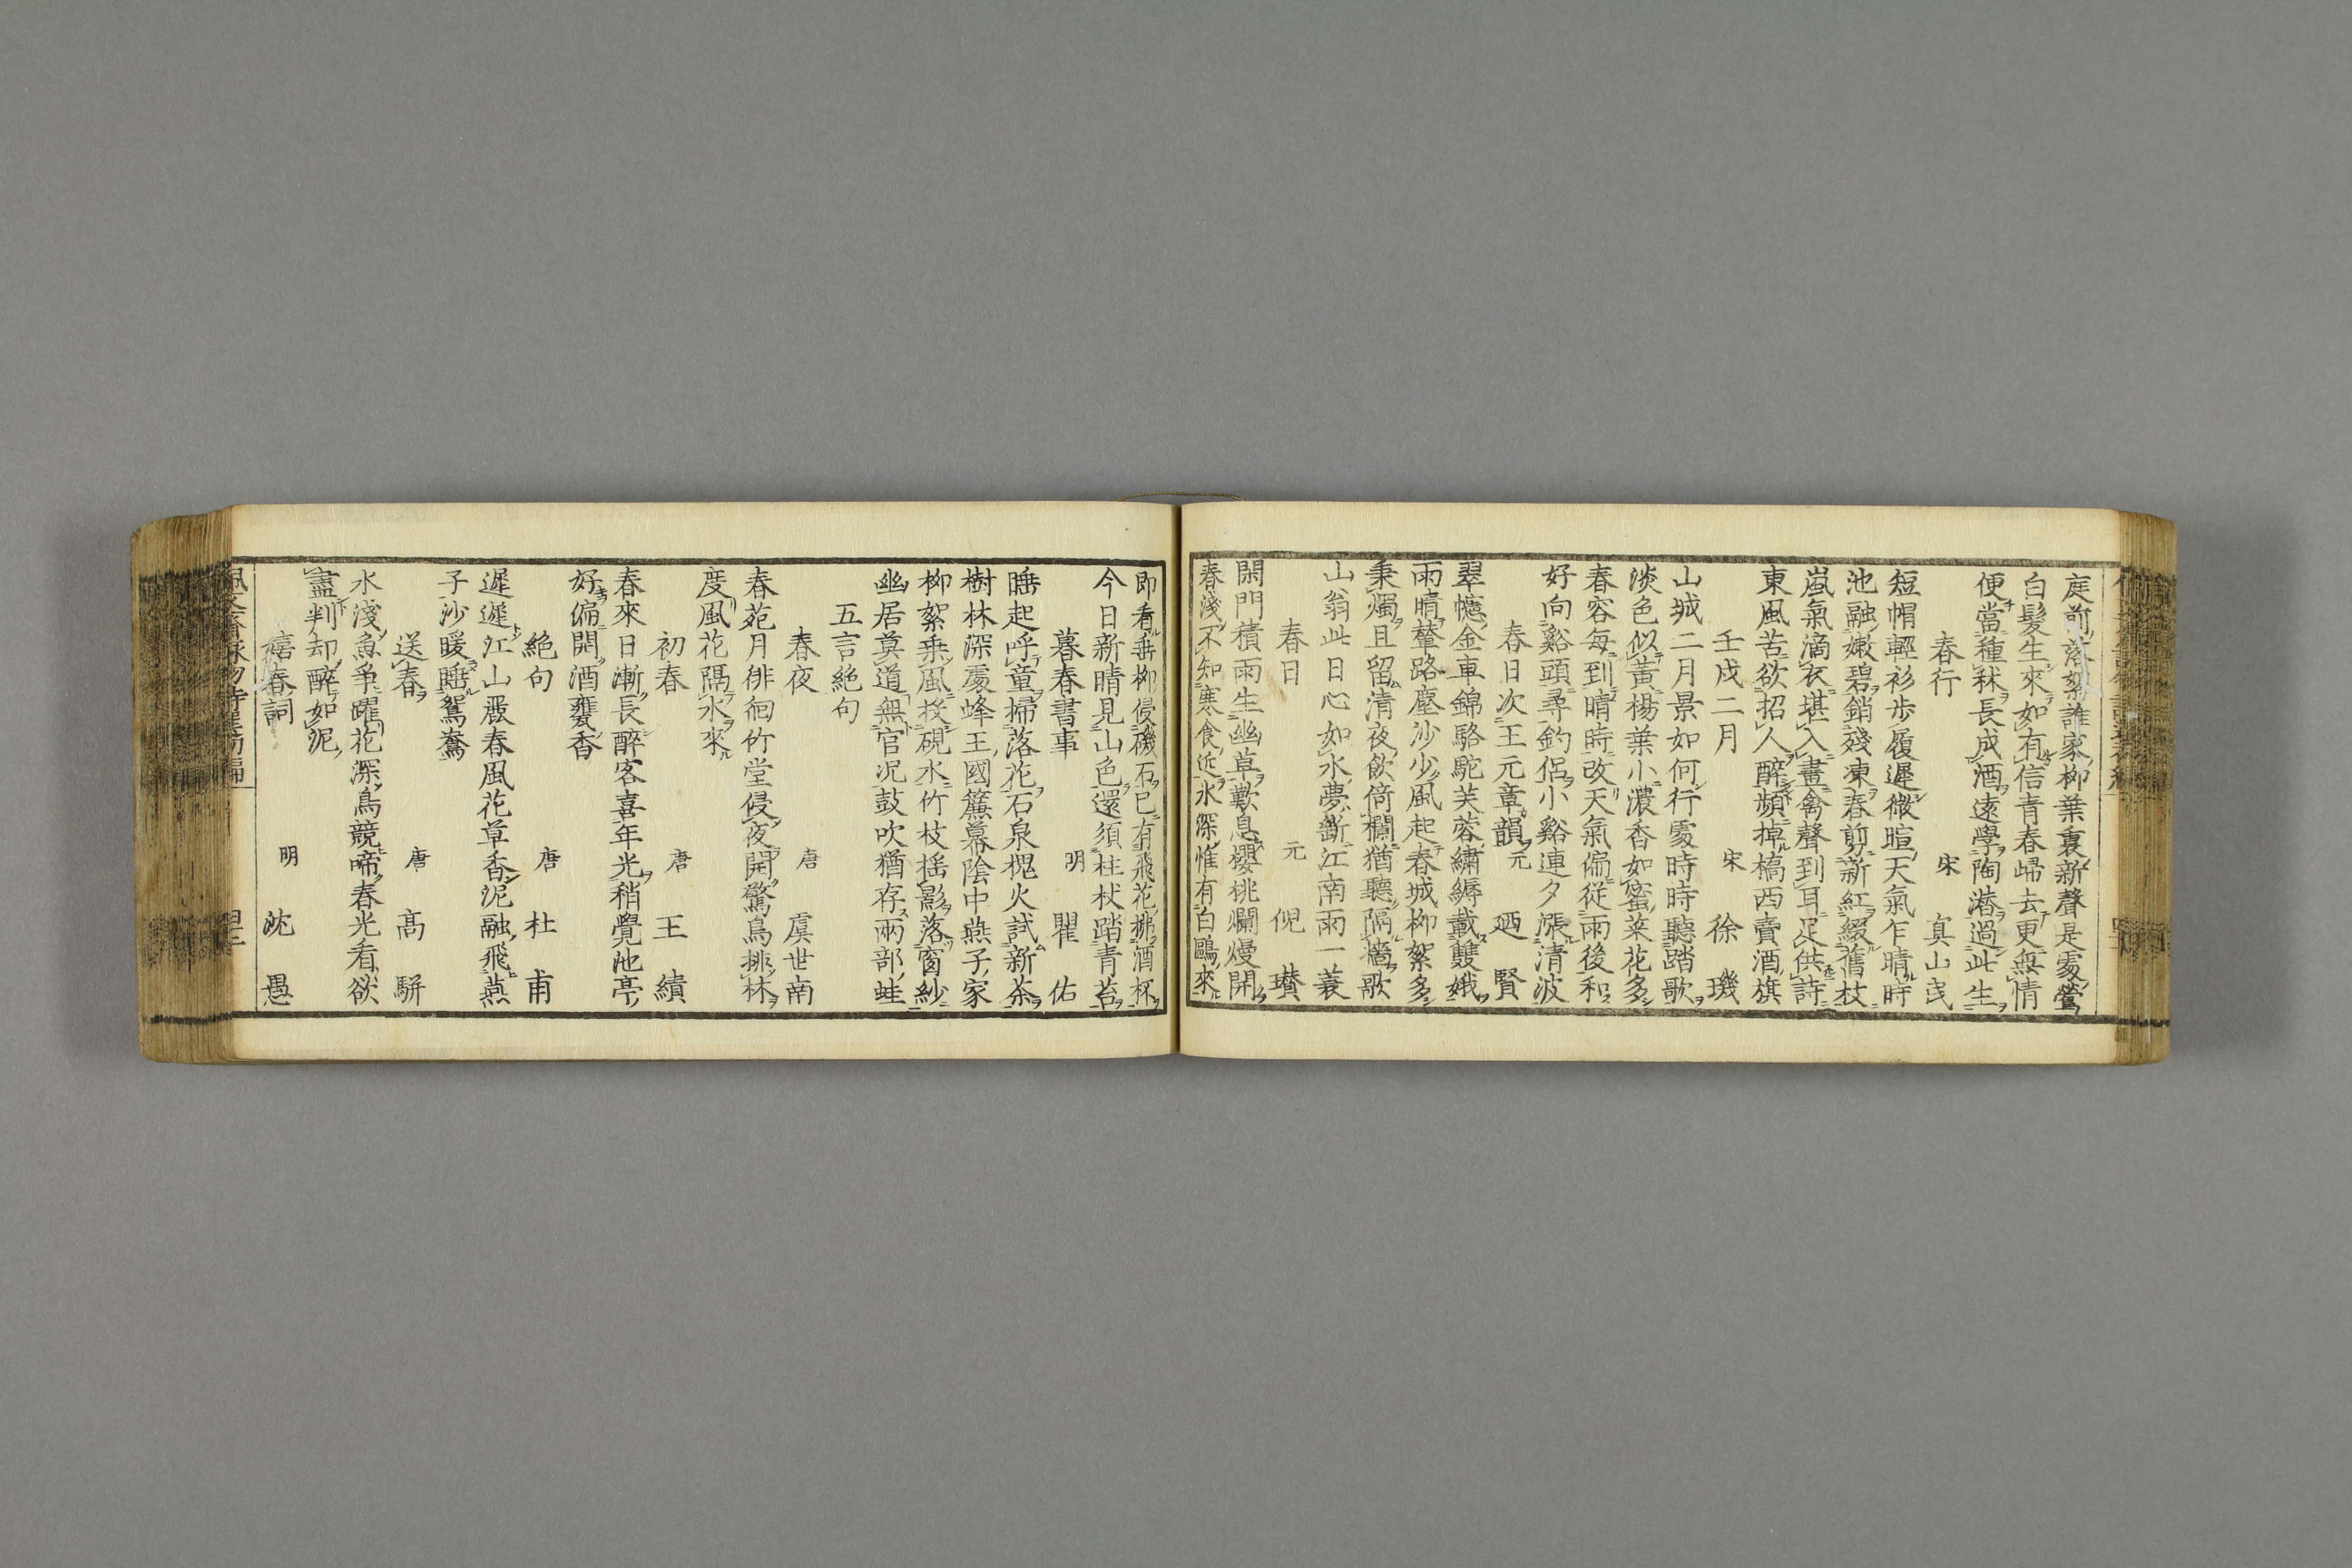 庭前落絮誰家柳葉裏新聲是處鶯
白髮生來如有信青春歸去更無情
便當種秫長成酒遠學陶潛過此生
春行 宋 真山民
短帽輕衫歩履遲微暄天氣乍晴時
池融嫩碧銷殘凍春剪新紅綴舊枝
嵐氣滴衣堪入畫禽聲到耳足供詩
東風苦欲招人醉頻掉橋西賣酒旗
壬戌二月 宋 徐璣
山城二月景如何行處時時聽踏歌
淡色似黃楊葉小濃香如蜜菜花多
春容每到晴時改天氣偏從雨後和
好向谿頭尋釣侶小谿連夕漲清波
春日次王元章韻 元 迺賢
翠幰金車錦駱駝芙蓉繡縟載雙娥
雨晴輦路塵沙少風起春城柳絮多
秉燭且留清夜飲倚欄猶聽隔牆歌
山翁此日心如水夢斷江南雨一蓑
春日 元 倪瓚
閉門積雨生幽草歎息櫻桃爛熳開
春淺不知寒食近水深惟有白鷗來
即看垂柳侵磯石已有飛花拂酒杯
今日新晴見山色還須柱杖踏青苔
暮春書事 明 瞿佑
睡起呼童掃落花石泉槐火試新茶
樹林深處蜂王國簾幕陰中燕子家
柳絮乗風投硯水竹枝搖影落窗紗
幽居莫道無官況鼓吹猶存兩部蛙
五言絶句
春夜 唐 虞世南
春苑月徘徊竹堂侵夜開驚鳥排林
度風花隔水來
初春 唐 王績
春來日漸長醉客喜年光稍覺池亭
好偏聞酒甕香
絶句 唐 杜甫
遲遲江山麗春風花草香泥融飛燕
子沙暖睡鴛鴦
送春 唐 高駢
水淺魚爭躍花深鳥競啼春光看欲
盡判却醉如泥
春詞 明 沈愚